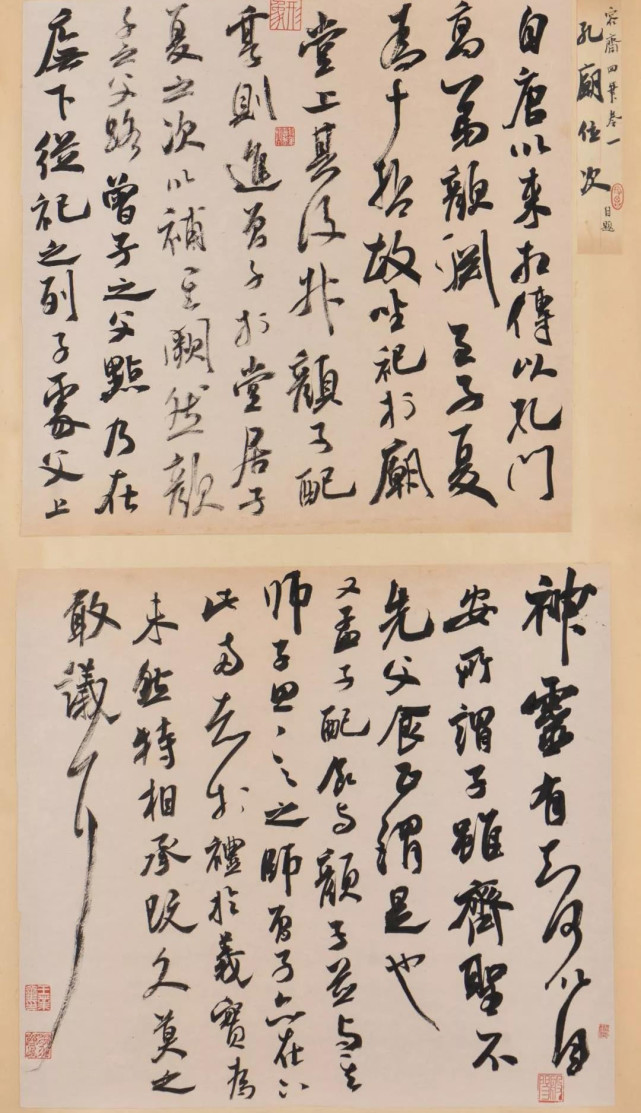 容齋四筆卷一
孔廟位次
自唐以来相傳以孔門
高弟顏渊至子夏
為十哲故坐祀於廟
堂上其後升顏子配
享則進曾子於堂居子
夏之次以補其闕然顏
子之父路曾子之父點乃在
廡下從祀之列子處父上
神靈有知何以自
安所謂子雖齊聖不
先父食正謂是也
又孟子配食与顏子並与其
師子思子思之師曾子亦在下
此兩者於禮於義實為
未然特相承既久莫之
敢議耳